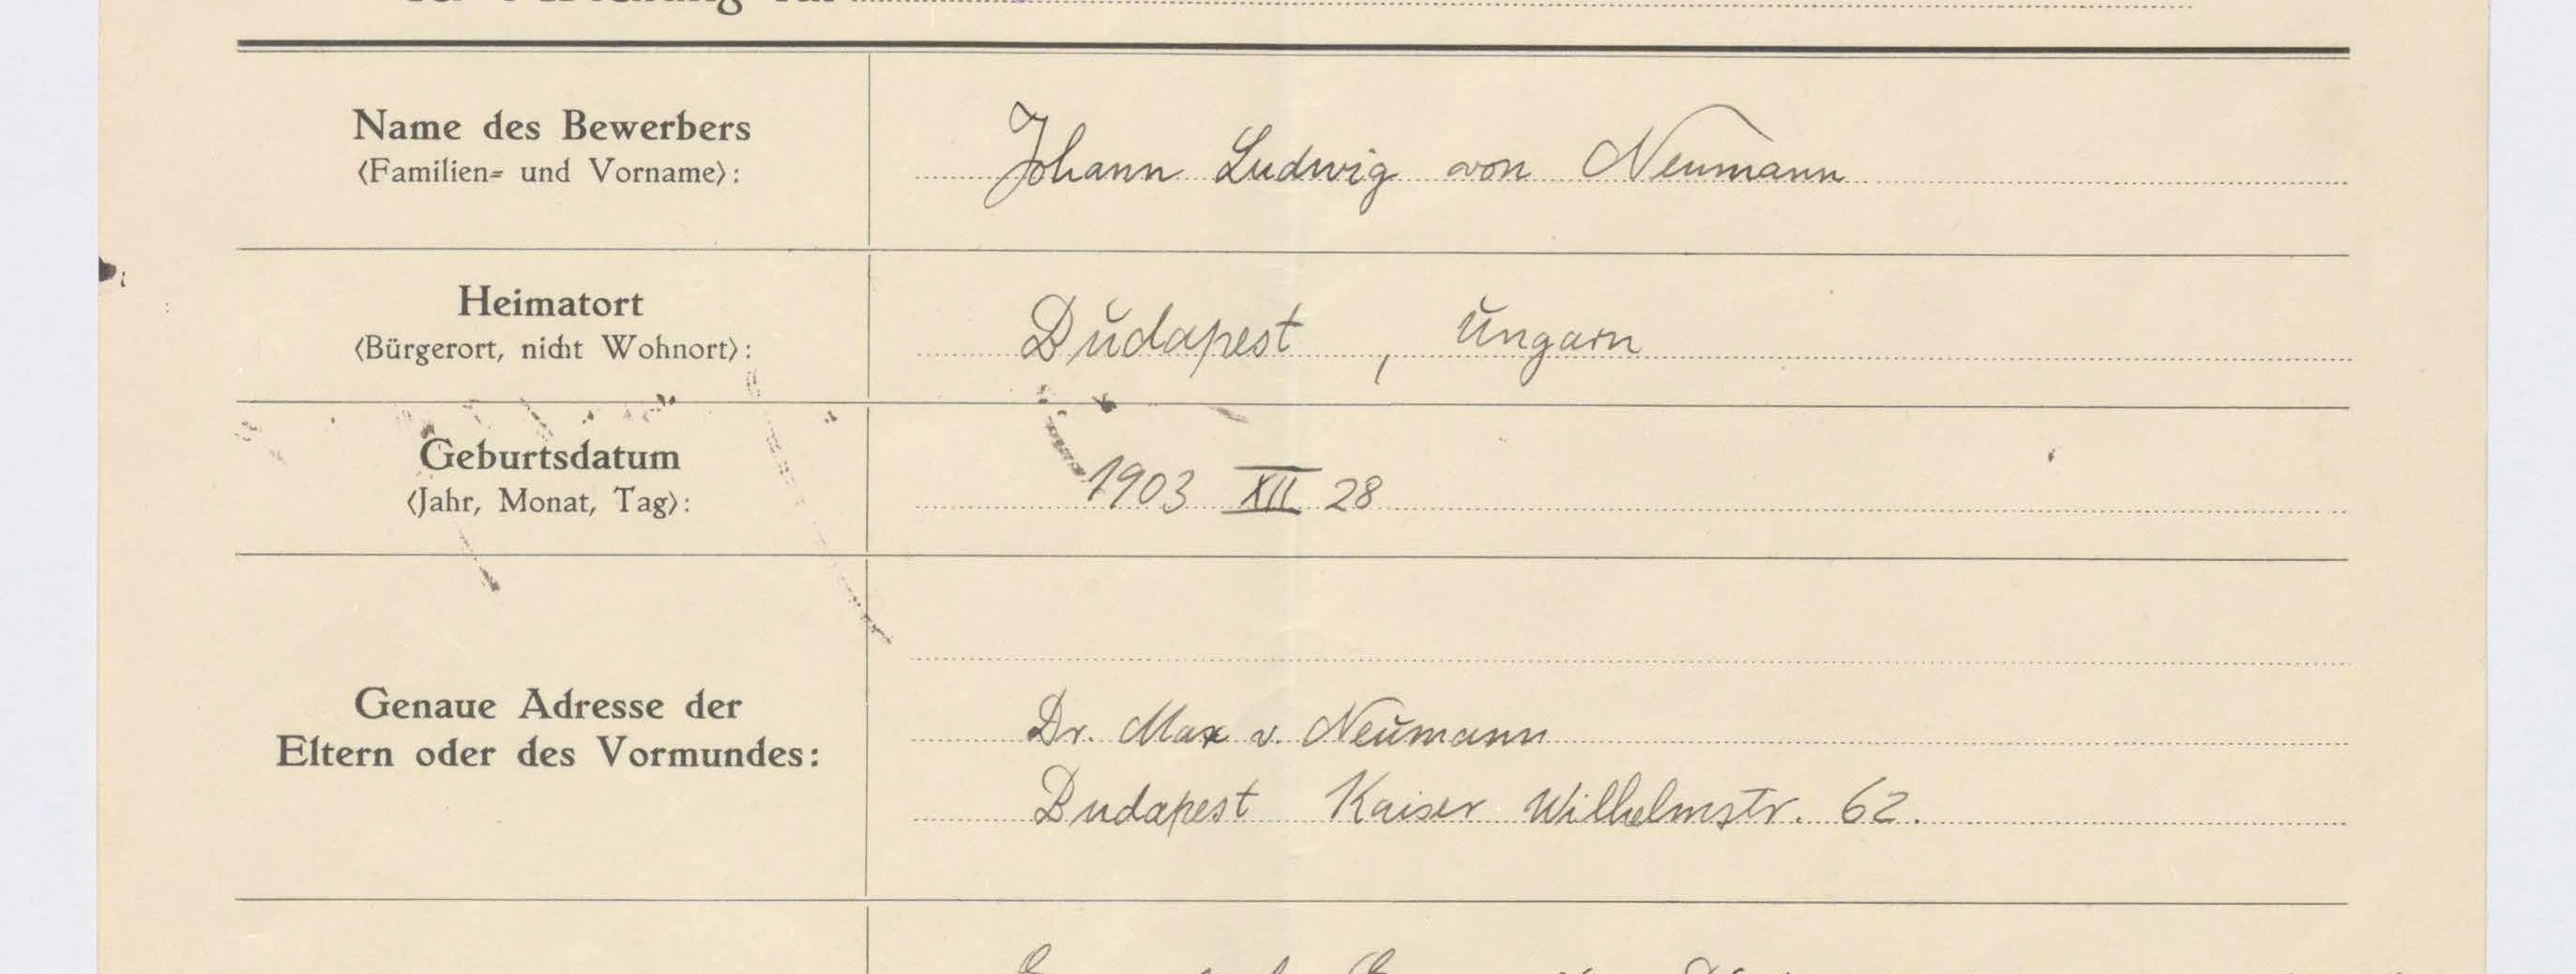 Name des Bewerbers
(Familien= und Vorname):
Johann Ludwig von Neumann
Heimatort
(Bürgerort, nicht Wohnort):
Budapest, Ungarn
Geburtsdatum
(Jahr, Monat, Tag):
1903 XII 28
Genaue Adresse der
Eltern oder des Vormundes:
Dr. Max v. Neumann
Budapest Kaiser Wilhelmstr. 62.